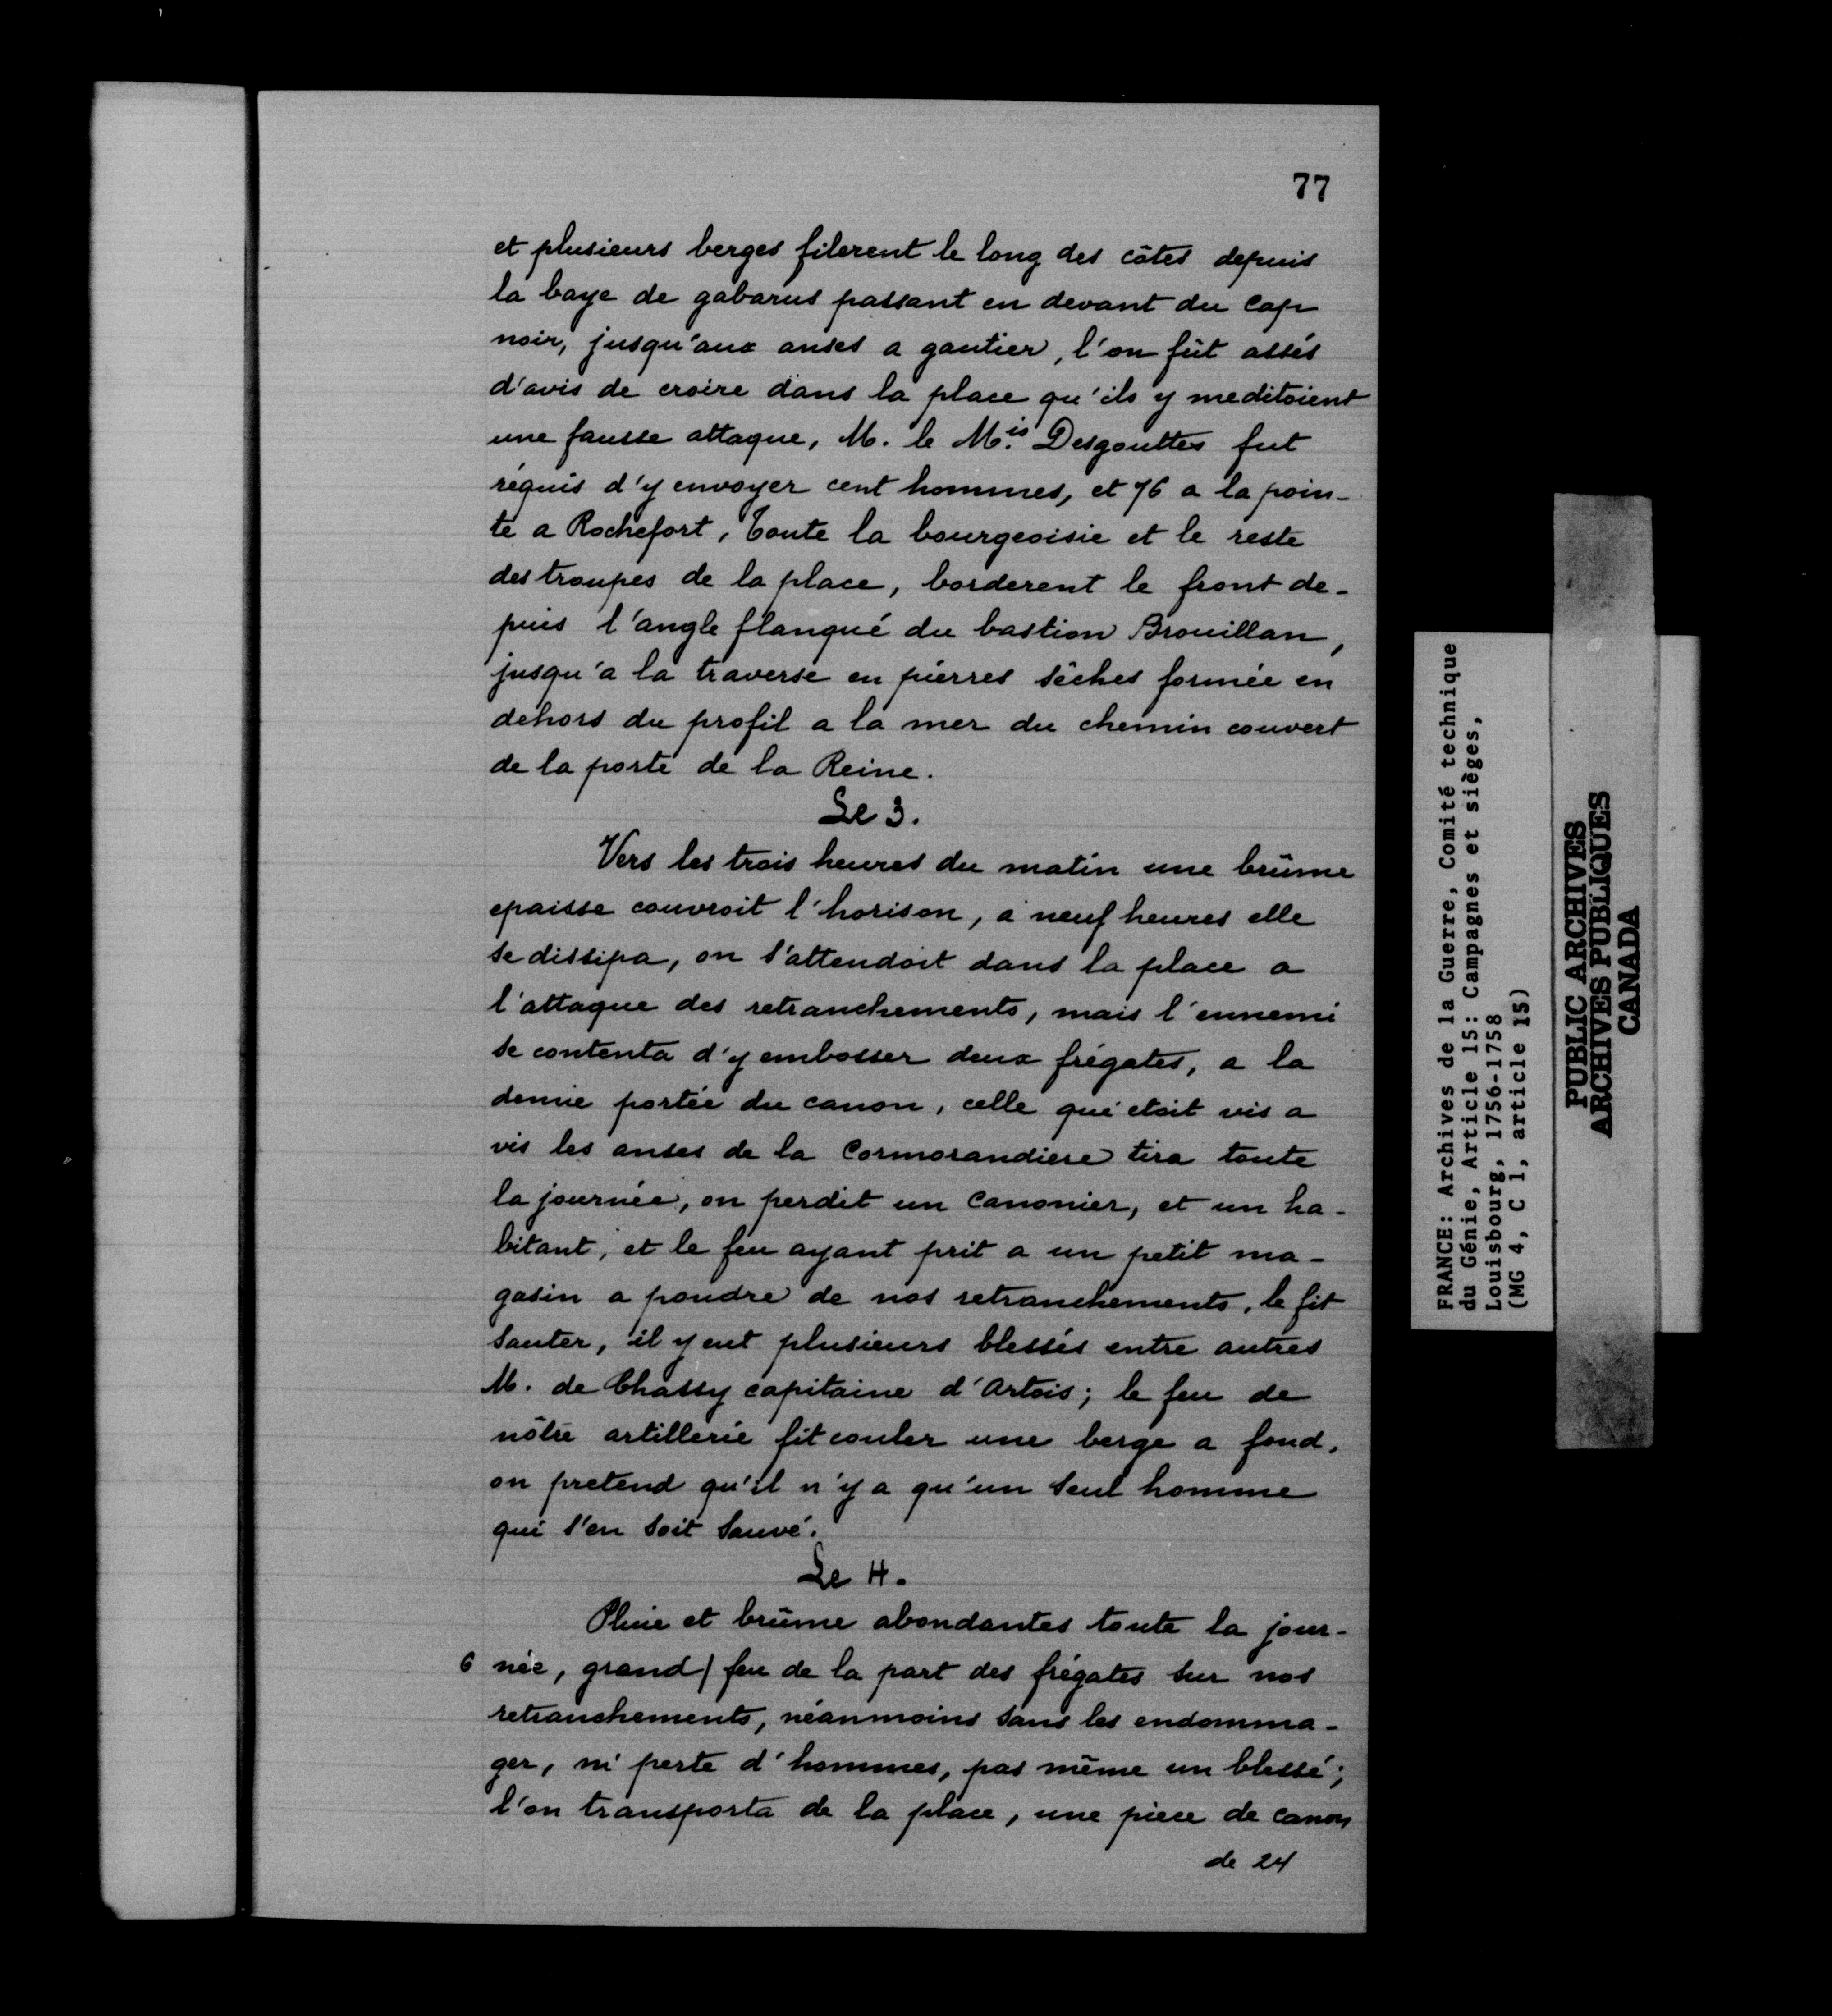 77
et plusieurs berges filerent le long des côtes depuis
la baye de gabarus passant en devant du Cap
noir, jusqu'aux anses a gautier, l'on fût assés
d'avis de croire dans la place qu'ils y meditoient
une fausse attaque, M. le M.is Desgouttes fut
réquis d'y envoyer cent hommes, et 76 a la poin-
te a Rochefort, Toute la bourgeoisie et le reste
des troupes de la place, borderent le front de-
puis l'angle flanqué du bastion Brouillan,
jusqu'a la traverse en pierres sêches formée en
dehors du profil a la mer du chemin couvert
de la porte de la Reine.
Le 3.
Vers les trois heures du matin une brûme
epaisse couvroit l'horison, a neuf heures elle
se dissipa, on s'attendoit dans la place a
l'attaque des retranchements, mais l'ennemi
se contenta d'y embosser deux frégates, a la
demie portée du canon, celle qui etoit vis a
vis les anses de la Cormorandiere tira toute
la journée, on perdit un Canonier, et un ha-
bitant, et le feu ayant prit a un petit ma-
gasin a poudre de nos retranchements, le fit
sauter, il y eut plusieurs blessés entre autres
M. de Chassy capitaine d'Artois; le feu de
nôtre artillerie fit couler une berge a fond,
on pretend qu'il n'y a qu'un seul homme
qui s'en soit sauvé.
Le 4.
Pluie et brûme abondantes toute la jour-
6 née, grand/ feu de la part des frégates sur nos
retranchements, néanmoins sans les endomma-
ger, ni perte d'hommes, pas même un blessé;
l'on transporta de la place, une piece de canon
de 24
FRANCE: Archives de la Guerre, Comité technique
du Génie, Article 15: Campagnes et sièges,
Louisbourg, 1756-1758
(MG 4, C 1, article 15)
PUBLIC ARCHIVES
ARCHIVES PUBLIQUES
CANADA